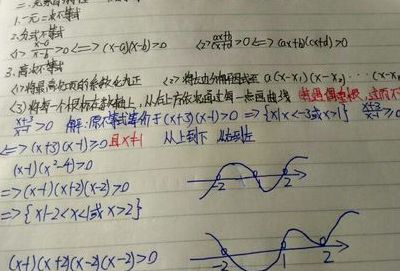 1. 一元二次不等式
2. 分式不等式
<1> (x-a)/(x-b)>0 <=> (x-a)(x-b)>0 <2> (ax+b)/(cx+d)>0 <=> (ax+b)(cx+d)>0
3. 高次不等式
<1> 将最高次项的系数化为正 <2> 将 分解因式至 a(x-x₁)(x-x₂)…(x-x
<3> 将每一个根标在数轴上，从右上方依次通过每一点画曲线
(x+3)/(x-1)>0 解：原不等式等价于(x+3)(x-1)>0 => {x|x<-3或x>1} (x+3)/(x-1)≥0
<=> (x+3)(x-1)≥0 且x≠1 从上到下 从右到左
(x-1)(x²-4)>0
=> (x-1)(x+2)(x-2)>0 -2 1 2
=> {x|-2<x<1或x>2}
(x-1)(x+2)(x-2)(x-2)>0 -2 1 2